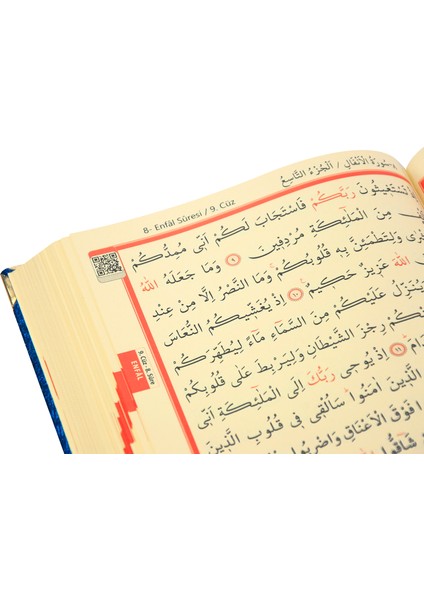 8- Enfâl Sûresi / 9. Cüz
سُورَةُ الْاَنْفَالِ / اَلْجُزْءُ التَّاسِعُ
تَسْتَغِيثُونَ رَبَّكُمْ فَاسْتَجَابَ لَكُمْ اَنّ۪ى مُمِدُّكُمْ
مِنَ الْمَلٰٓئِكَةِ مُرْدِف۪ينَ ﴿٩﴾ وَمَا جَعَلَهُ اللّٰهُ
وَلِتَطْمَئِنَّ بِه۪ قُلُوبُكُمْ وَمَا النَّصْرُ اِلَّا مِنْ عِنْدِ
اللّٰهَ عَز۪يزٌ حَك۪يمٌ ﴿١٠﴾ اِذْ يُغَشّ۪يكُمُ النُّعَاسَ
يُنَزِّلُ عَلَيْكُمْ مِنَ السَّمَٓاءِ مَٓاءً لِيُطَهِّرَكُمْ
رِجْزَ الشَّيْطَانِ وَلِيَرْبِطَ عَلٰى قُلُوبِكُمْ
﴿١١﴾ اِذْ يُوح۪ى رَبُّكَ اِلَى الْمَلٰٓئِكَةِ اَنّ۪ى
الَّذ۪ينَ اٰمَنُوا سَاُلْق۪ى ف۪ى قُلُوبِ الَّذ۪ينَ
فَوْقَ الْاَعْنَاقِ وَاضْرِبُوا
شَٓاقُّوا
9.Cüz-8.Sûre
ENFÂL